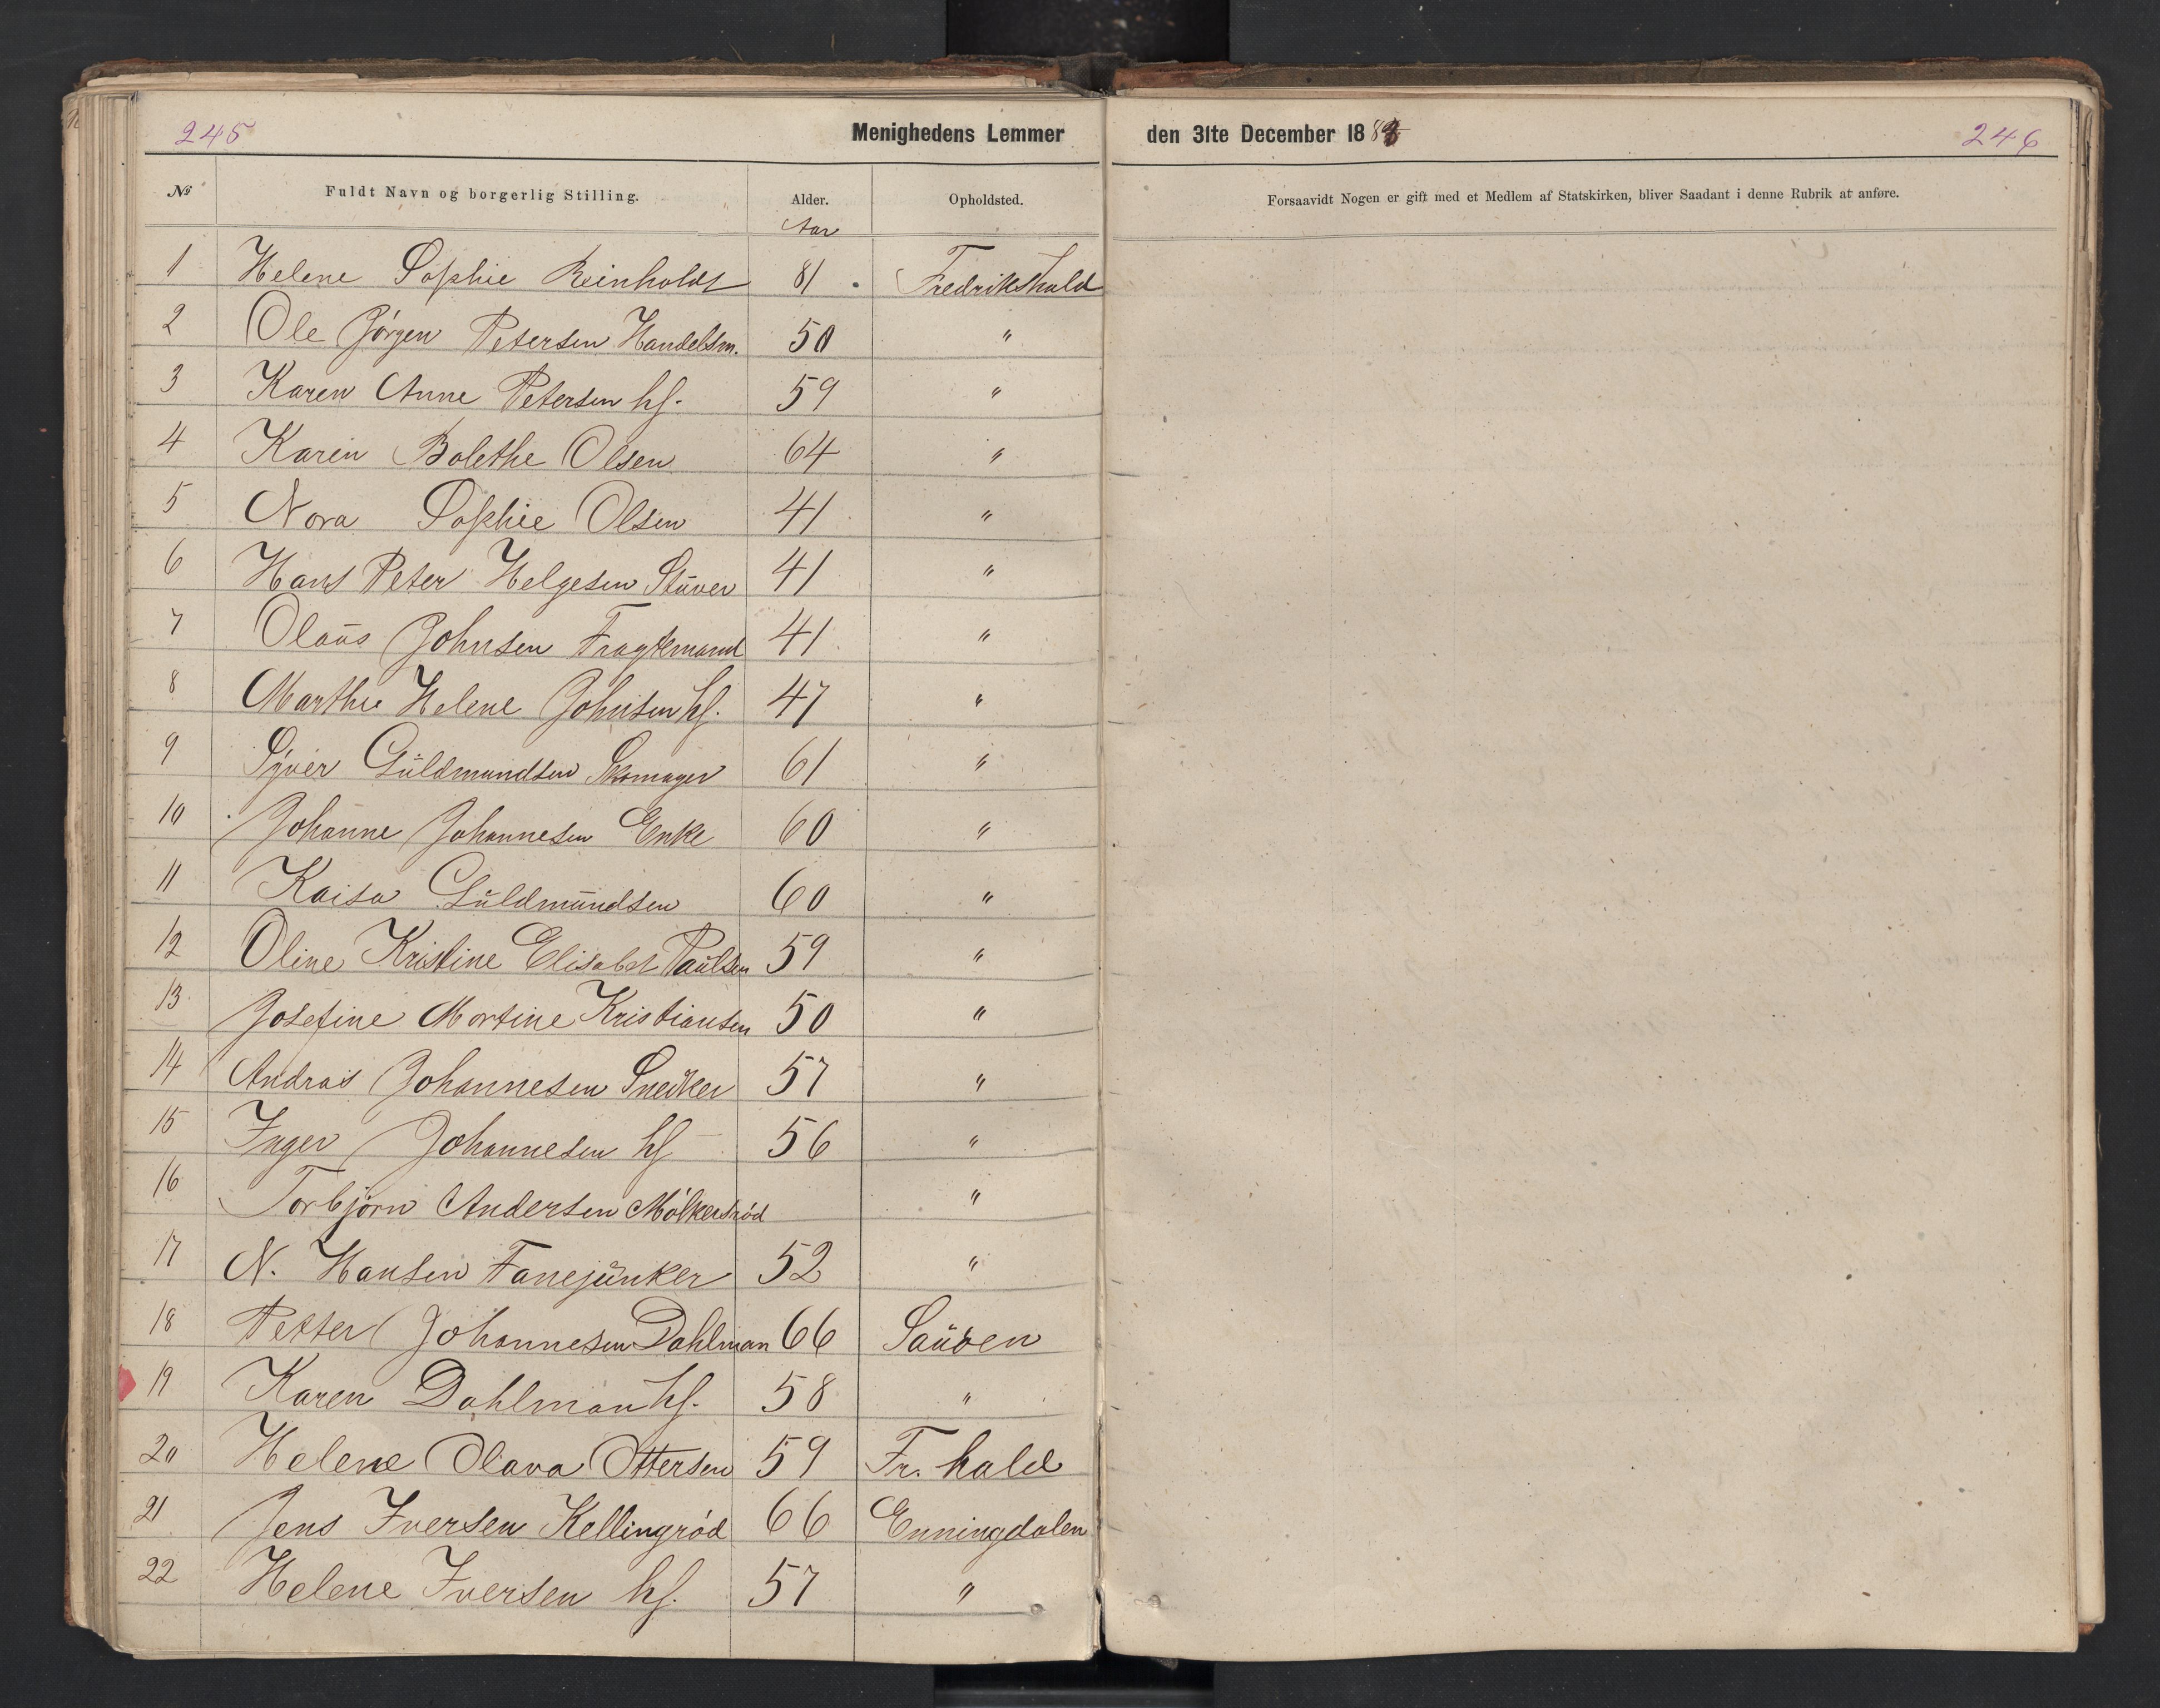 245
Menighedens Lemmer
№ Fuldt Navn og borgerlig Stilling. Alder. Opholdsted.
Aar
1 Helene Sophie Reinholdt 81. Fredrikshald
2 Ole Jørgen Petersen Handelsm. 50 "
3 Karen Anne Petersen hf. 59 "
4 Karen Bolethe Olsen 64 "
5 Nora Sophie Olsen 41 "
6 Hans Peter Helgesen Stuver 41 "
7 Olaus Johnsen Fragtemand 41 "
8 Marthe Helene Johnsen hf. 47 "
9 Syver Guldmundsen Skomager 61 "
10 Johanne Johannesen Enke 60 "
11 Kaisa Guldmundsen 60 "
12 Oline Kristine Elisabet Paulsen 59 "
13 Josefine Martine Kristiansen 50 "
14 Andras Johannesen Snedker 57 "
15 Inger Johannesen hf 56 "
16 Torbjørn Andersen "
17 N. Hansen Fanejunker 52 "
18 Petter Johannesen Dahlman 66
19 Karen Dahlman hf. 58 "
20 Helene Olava Ottersen 59 Fr. hald
21 Jens Iversen Kellingrød 66 Enningdalen
22 Helene Iversen hf. 57 "
den 31te December 188
246
Forsaavidt Nogen er gift med et Medlem af Statskirken, bliver Saadant i denne Rubrik at anføre.